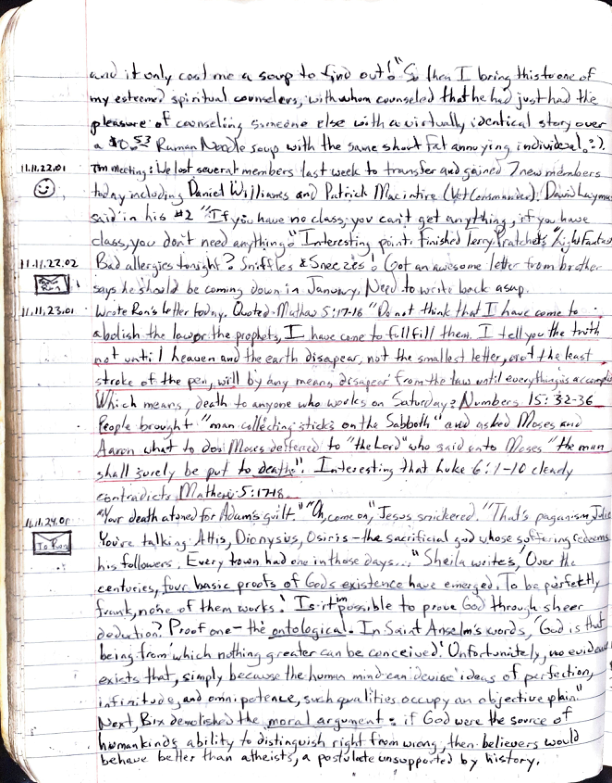 and it only cost me a soup to find out!" So then I bring this to one of
my esteemed spiritual counselers, with whom counseled that he had just had the
pleasure of counseling someone else with a virtually identical story over
a $0.53 Raman Noodle soup with the same short fat annying individeal. :).
11.11.22.01 TM meeting: We lost several members last week to transfer and gained 7 new members
today including Daniel Williams and Patrick Macintire (Vet Commander). David
said in his #2 "If you have no class, you can't get anything, if you have
class, you don't need anything." Interesting point. Finished Terry Pratchet's
11.11.22.02 Bad allergies tonight? Sniffles & Sneezes! Got an awesome letter from brother
says he should be coming down in January. Need to write back asap.
11.11.23.01 Wrote Ron's letter today. Quoted Mathew 5:17-18 "Do not think that I have come to
abolish the law or the prophets, I have come to fullfill them. I tell you the truth
not until heaven and the earth disapear, not the smallest letter, not the least
stroke of the pen, will by any means disapear from the law until everything is
Which means, death to anyone who works on Saturday? Numbers 15:32-36
People brought "man collecting sticks on the Sabboth" and asked Moses and
Aaron what to do. Moses deffered to "the Lord" who said unto Moses "the man
shall surely be put to death". Interesting that Luke 6:1-10 clearly
contradicts Mathew 5:17-18.
11.11.24.01 "Your death atoned for Adam's guilt." "Oh, come on," Jesus snickered. "That's paganism,
To Ron You're talking Attis, Dionysius, Osiris – the sacrificial god whose suffering redeems
his followers. Every town had one in those days..." Sheila writes, "Over the
centuries, four basic proofs of Gods existence have emerged. To be perfectly
frank, none of them works! Is it impossible to prove God through sheer
deduction? Proof one – the ontological. In Saint Anselm's words, 'God is that
being from which nothing greater can be conceived.' Unfortunately, no
exists that, simply because the human mind can devise ideas of perfection,
infinitude, and omnipotence, such qualities occupy an objective plain."
Next, Bix demolished the moral argument: if God were the source of
humankinds ability to distinguish right from wrong, then believers would
behave better than atheists, a postulate unsupported by history.